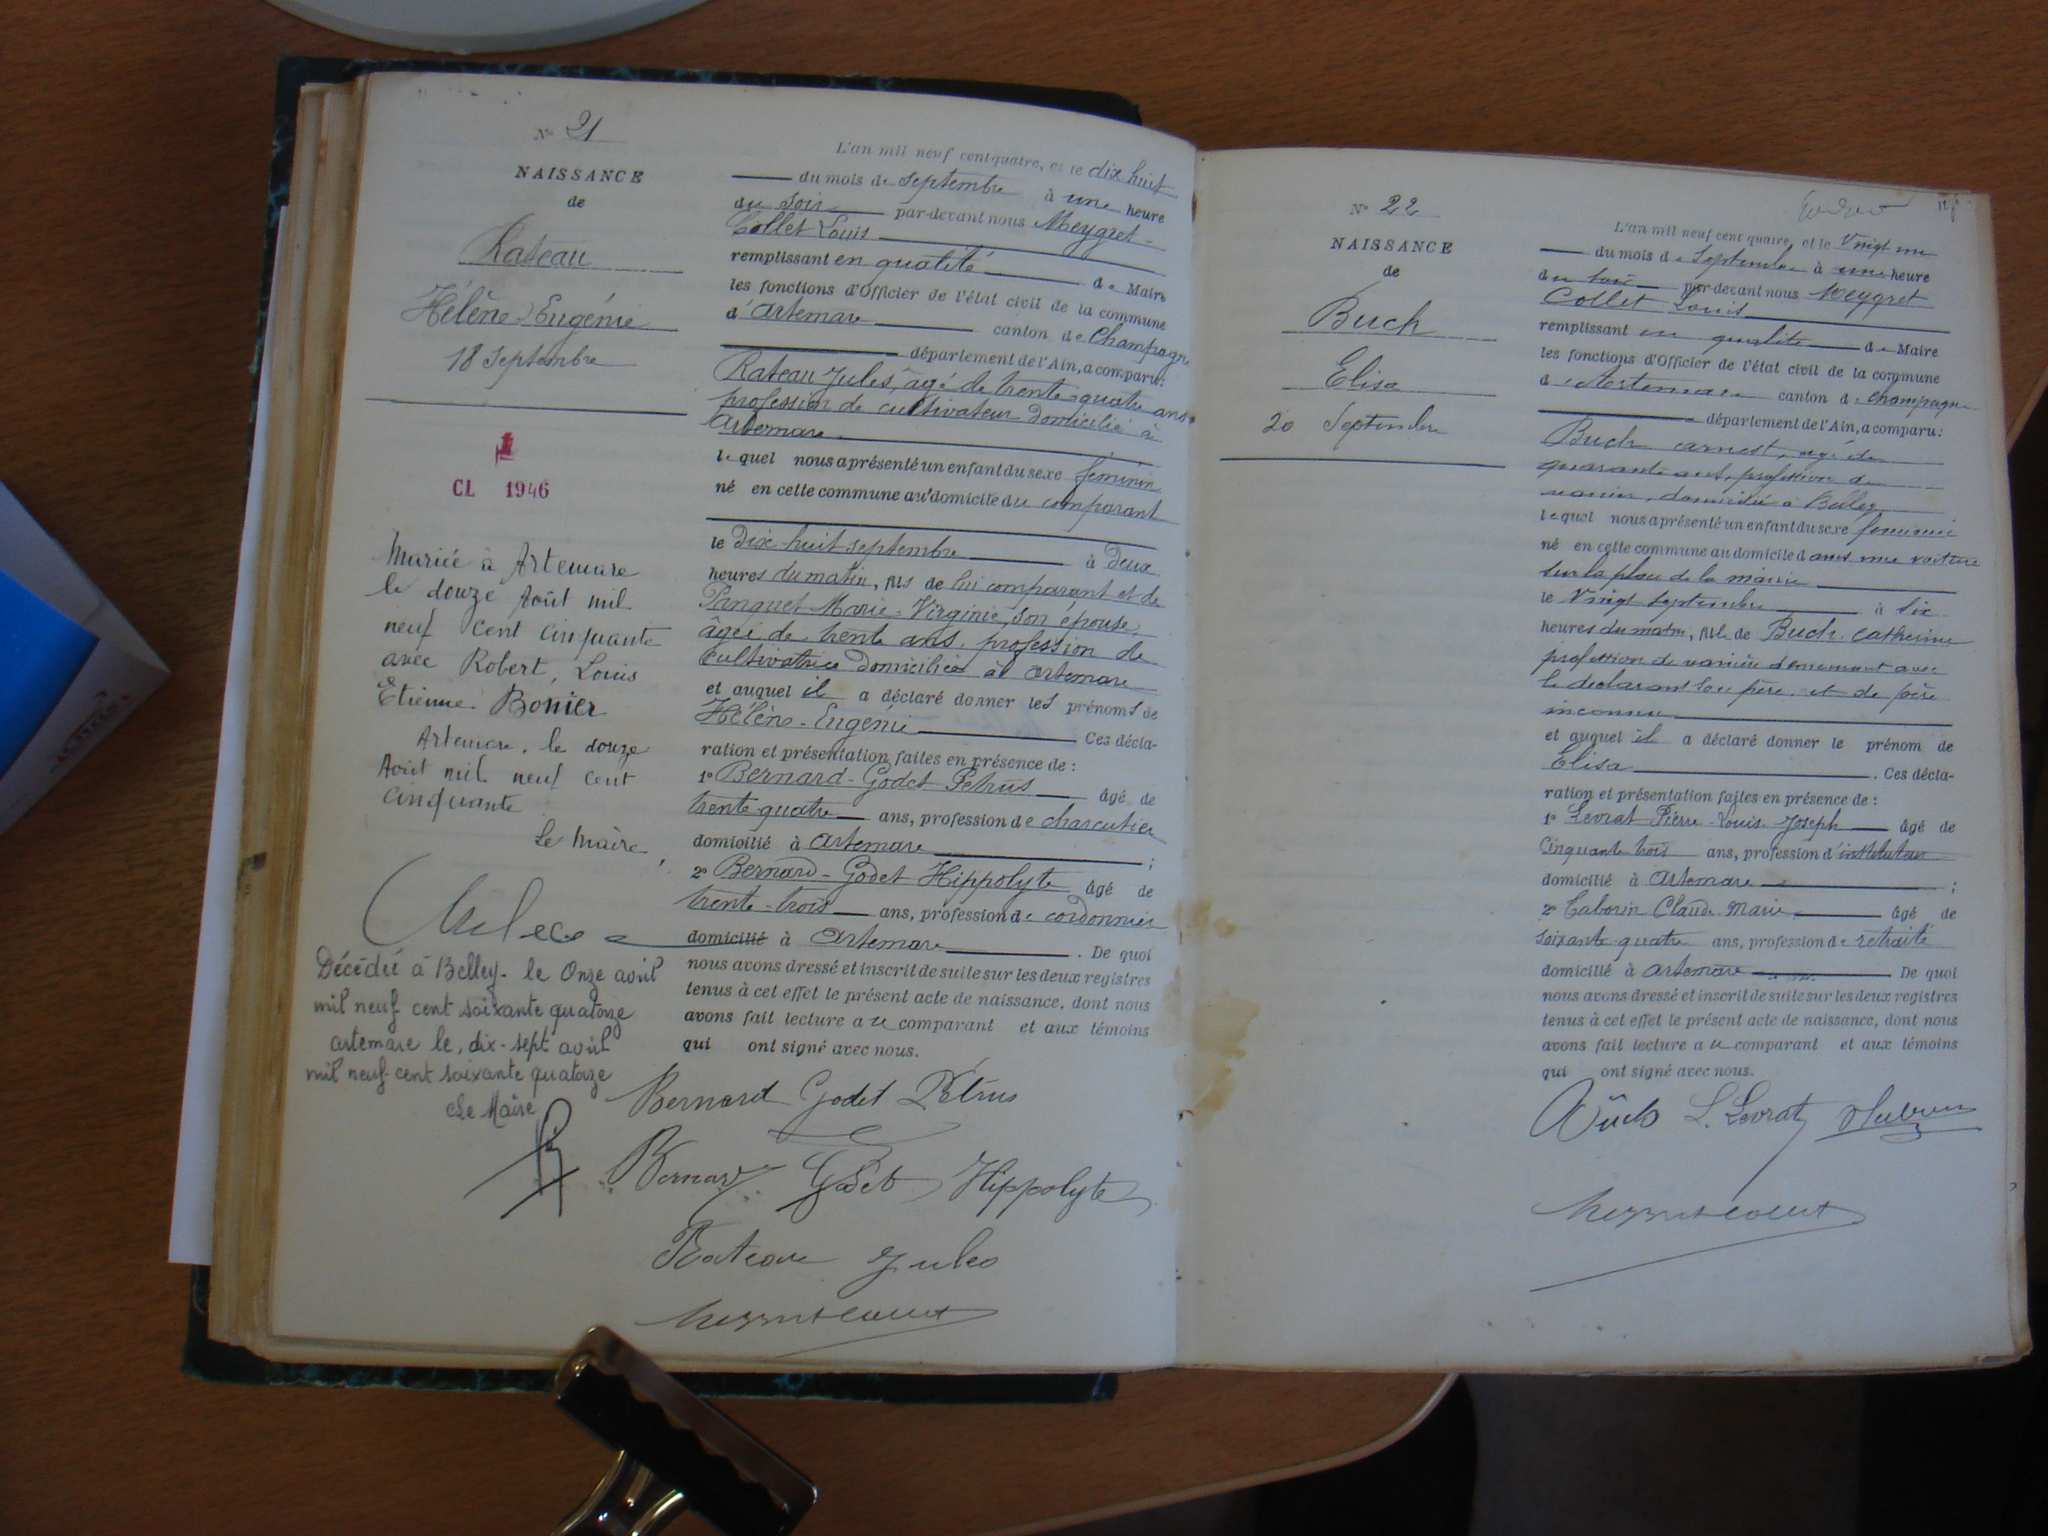 N° 21
NAISSANCE
de
Rateau
Hélène-Eugénie
18 Septembre
CL 1946
Mariée à Artemare
le douze Août mil
neuf cent cinquante
avec Robert, Louis
Etienne Bonier
Artemare, le douze
Août mil neuf cent
cinquante
Le Maire,
Décédée à Belley le Onze avril
mil neuf cent soixante quatorze
artemare le, dix-sept avril
mil neuf cent soixante quatorze
Le Maire
L'an mil neuf cent quatre, et le dix huit
du mois de Septembre à une heure
du soir par-devant nous Meygret-
Collet Louis
remplissant en qualité de Maire
les fonctions d'Officier de l'état civil de la commune
d'Artemare canton de Champagne
département de l'Ain, a comparu:
Rateau Jules, âgé de trente-quatre ans
profession de cultivateur domicilié à
Artemare
lequel nous a présenté un enfant du sexe féminin
né en cette commune au domicile du comparant
le dix-huit septembre à deux
heures du matin, fils de lui comparant et de
Panquet Marie-Virginie, son épouse,
âgée de trente ans, profession de
cultivatrice domiciliée à Artemare
et auquel il a déclaré donner les prénoms de
Hélène-Eugénie Ces décla-
ration et présentation faites en présence de:
1° Bernard-Godet Pétrus âgé de
trente-quatre ans, profession de charcutier
domicilié à Artemare ;
2° Bernard-Godet Hippolyte âgé de
trente-trois ans, profession de cordonnier
domicilié à Artemare . De quoi
nous avons dressé et inscrit de suite sur les deux registres
tenus à cet effet le présent acte de naissance, dont nous
avons fait lecture au comparant et aux témoins
qui ont signé avec nous.
Bernard Godet Pétrus
Bernard Godet Hippolyte
Rateau Jules
Meygret Collet
N° 22
NAISSANCE
de
Buch
Elisa
20 Septembre
L'an mil neuf cent quatre, et le Vingt un
du mois de Septembre à une heure
du soir par-devant nous Meygret
Collet Louis
remplissant en qualité de Maire
les fonctions d'Officier de l'état civil de la commune
d'Artemare canton de Champagne
département de l'Ain, a comparu:
Buch ernest, âgé de
quarante ans, profession de
vanier, domicilié à
lequel nous a présenté un enfant du sexe feminin
né en cette commune au domicile dans une voiture
sur la place de la mairie
le Vingt Septembre à six
heures du matin, fille de Buch Catherine
profession de vanière demeurant avec
le déclarant son père et de père
inconnu
et auquel il a déclaré donner le prénom de
Elisa . Ces décla-
ration et présentation faites en présence de:
1° Levrat Pierre-Louis Joseph âgé de
Cinquante trois ans, profession d'instituteur
domicilié à Artemare ;
2° Claude Marie âgé de
soixante quatre ans, profession de retraité
domicilié à Artemare De quoi
nous avons dressé et inscrit de suite sur les deux registres
tenus à cet effet le présent acte de naissance, dont nous
avons fait lecture au comparant et aux témoins
qui ont signé avec nous.
Büch L. Levrat
Meygret Collet